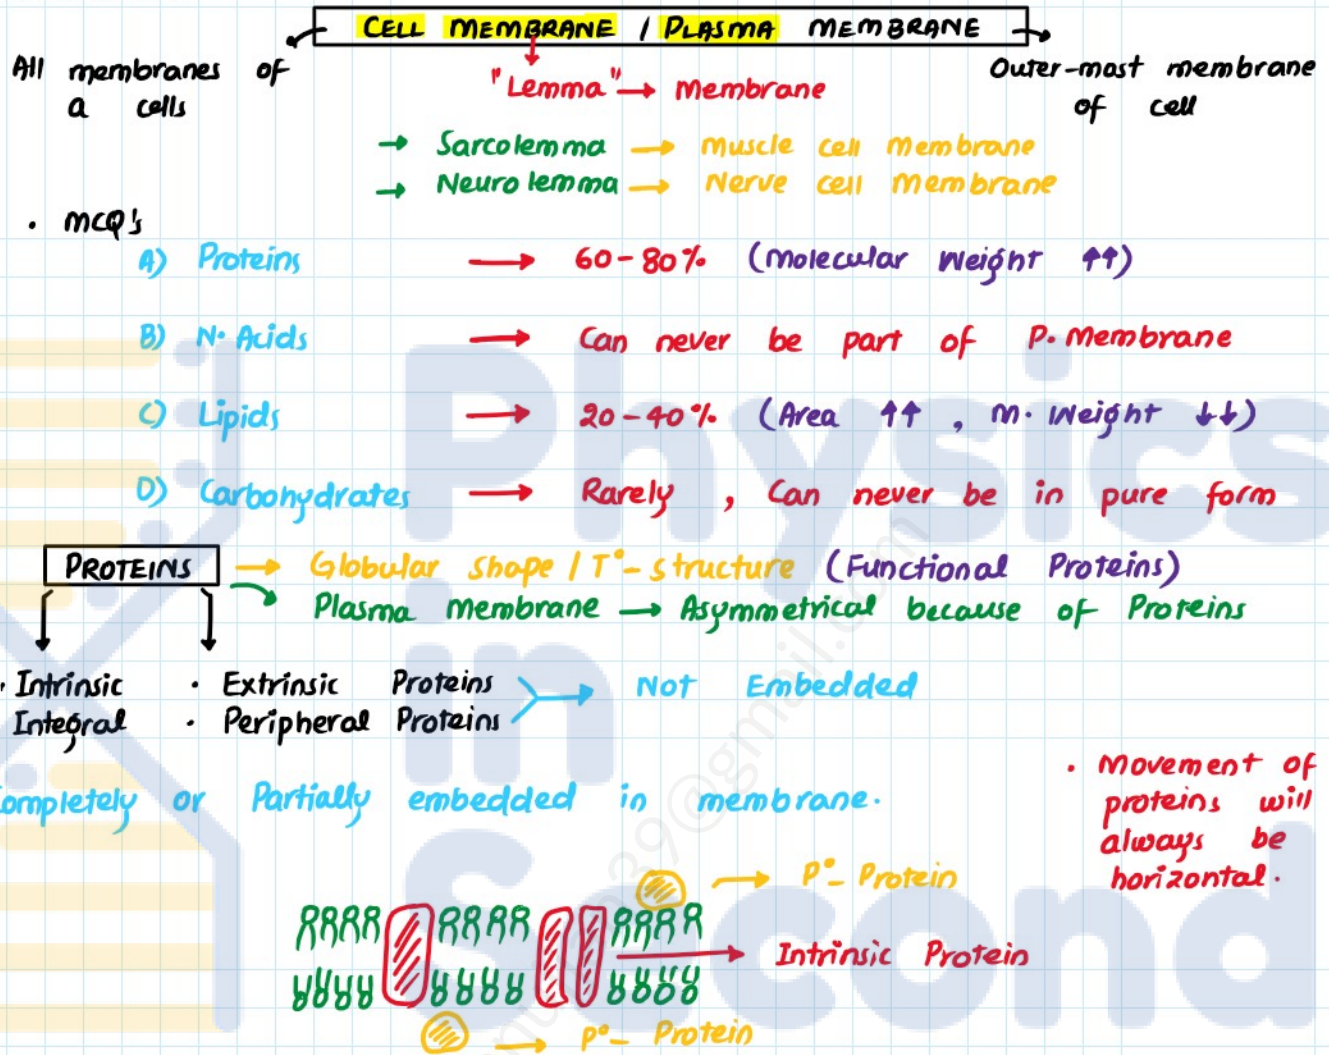 CELL MEMBRANE / PLASMA MEMBRANE
All membranes of a cells
"Lemma" → Membrane
Outer-most membrane of cell
→ Sarcolemma → Muscle cell Membrane
→ Neurolemma → Nerve cell Membrane
• MCQ's
A) Proteins → 60-80% (Molecular Weight ↑↑)
B) N. Acids → Can never be part of P. Membrane
C) Lipids → 20-40% (Area ↑↑, M. Weight ↓↓)
D) Carbohydrates → Rarely, Can never be in pure form
PROTEINS → Globular shape / T°-structure (Functional Proteins)
Plasma membrane → Asymmetrical because of Proteins
• Intrinsic • Extrinsic Proteins → Not Embedded
Integral • Peripheral Proteins
Completely or Partially embedded in membrane.
• Movement of
proteins will
always be
horizontal.
→ P°- Protein
→ Intrinsic Protein
→ P°- Protein
Physics
in
Second
39@gmail.com